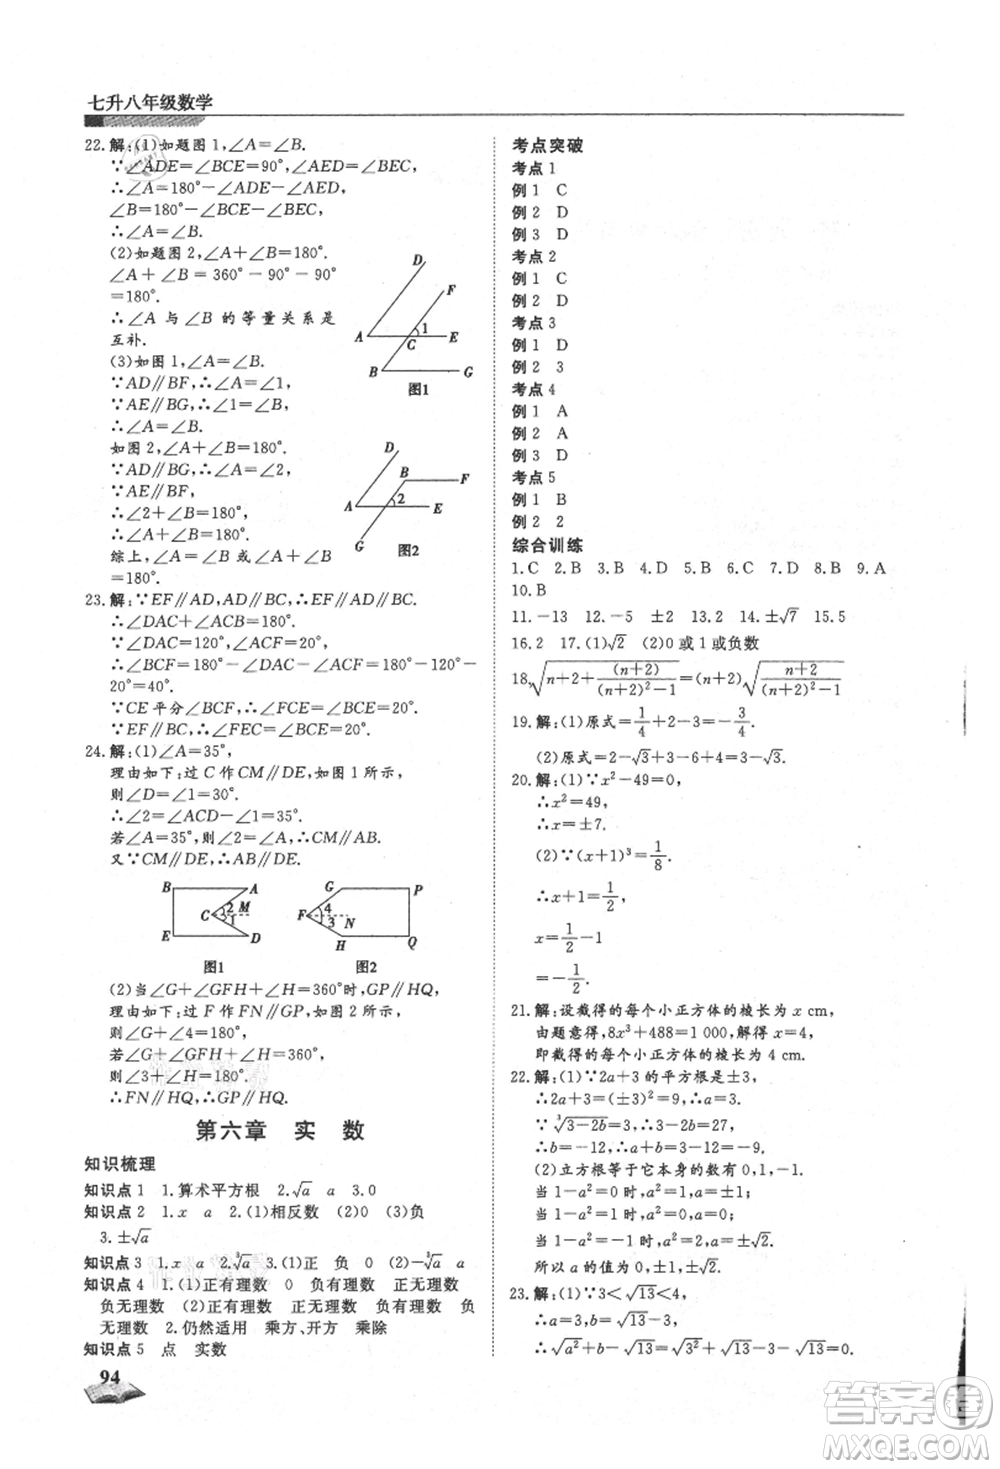 七升八年级数学
22.解:(1)如题图1,∠A=∠B.
∵∠ADE=∠BCE=90°,∠AED=∠BEC,
∴∠A=180°-∠ADE-∠AED,
∠B=180°-∠BCE-∠BEC,
∴∠A=∠B.
(2)如题图2,∠A+∠B=180°.
∠A+∠B=360°-90°-90°
=180°.
∴∠A与∠B的等量关系是
互补.
(3)如图1,∠A=∠B.
∵AD∥BF,∴∠A=∠1.
∵AE∥BG,∴∠1=∠B.
∴∠A=∠B.
如图2,∠A+∠B=180°.
∵AD∥BG,∴∠A=∠2.
∵AE∥BF,
∴∠2+∠B=180°,
∴∠A+∠B=180°.
综上,∠A=∠B或∠A+∠B=180°.
D
F
1
A
C
E
B
G
图1
D
B
F
2
A
E
G
图2
23.解:∵EF∥AD,AD∥BC,∴EF∥AD∥BC.
∴∠DAC+∠ACB=180°.
∵∠DAC=120°,∴∠ACB=60°.
∴∠BCF=180°-∠DAC-∠ACF=180°-120°-
20°=40°.
∵CE平分∠BCF,∴∠FCE=∠BCE=20°.
∵EF∥BC,∴∠FEC=∠BCE=20°.
24.解:(1)∠A=35°,
理由如下:过C作CM∥DE,如图1所示,
则∠D=∠1=30°.
∴∠2=∠ACD-∠1=35°.
若∠A=35°,则∠2=∠A,∴CM∥AB.
又∵CM∥DE,∴AB∥DE.
B
A
2
C
M
1
E
D
图1
G
P
4
F
3
N
H
Q
图2
(2)当∠G+∠GFH+∠H=360°时,GP∥HQ,
理由如下:过F作FN∥GP,如图2所示,
则∠G+∠4=180°.
若∠G+∠GFH+∠H=360°,
则∠3+∠H=180°.
∴FN∥HQ,∴GP∥HQ.
第六章 实 数
知识梳理
知识点1 1.算术平方根 2.√a a 3.0
知识点2 1.x a 2.(1)相反数 (2)0 (3)负
3.±√a
知识点3 1.x a 2.∛a 3.(1)正 负 0 (2)-∛a
知识点4 1.(1)正有理数 0 负有理数 正无理数
负无理数 (2)正有理数 正无理数 负有理数 负
无理数 2.仍然适用 乘方、开方 乘除
知识点5 点 实数
94
考点突破
考点1
例1 C
例2 D
例3 D
考点2
例1 C
例2 D
考点3
例1 D
例2 3
考点4
例1 A
例2 A
例3 D
考点5
例1 B
例2 2
综合训练
1.C 2.B 3.B 4.D 5.C 6.D 7.D 8.B 9.A
10.B
11.-13 12.-5 ±2 13.2 14.±√7 15.5
16.2 17.(1)√2 (2)0或1或负数
18.√(n+2+(n+2)/((n+2)²-1))=(n+2)√((n+2)/((n+2)²-1))
19.解:(1)原式=1/4+2-3=-3/4.
(2)原式=2-√3+3-6+4=3-√3.
20.解:(1)∵x²-49=0,
∴x²=49,
∴x=±7.
(2)∵(x+1)³=1/8.
∴x+1=1/2,
x=1/2-1
=-1/2.
21.解:设截得的每个小正方体的棱长为x cm,
由题意得,8x³+488=1 000,解得x=4,
即截得的每个小正方体的棱长为4 cm.
22.解:(1)∵2a+3的平方根是±3,
∴2a+3=(±3)²=9,∴a=3.
∵∛(3-2b)=3,∴3-2b=27,
∴b=-12,∴a-b=3-(-12)=15.
(2)立方根等于它本身的数有0,1,-1.
当1-a²=0时,a²=1,∴a=±1.
当1-a²=1时,a²=0,∴a=0.
当1-a²=-1时,a²=2,∴a=±√2.
所以a的值为0,±1,±√2.
23.解:(1)∵3<√13<4,
∴a=3,b=√13-3,
∴√a²+b-√13=√9+√13-3-√13=0.
答案圈
MXQE.COM